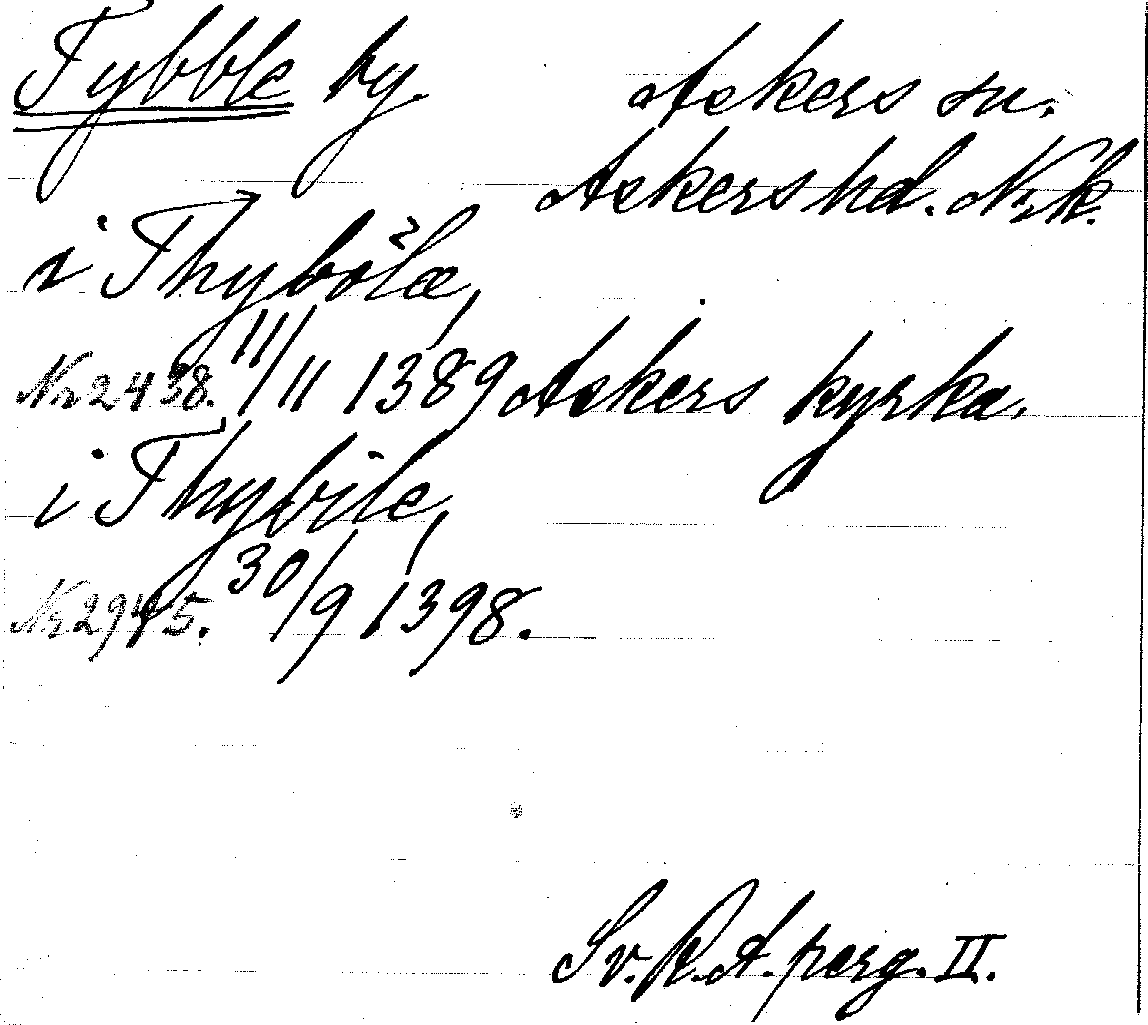 Tybble by. Askers sn.
Askers hd. Nrk.
i Thybölæ,
Nr 2438. 11/11 1389 Askers kyrka.
i Thybile,
Nr 2945. 30/9 1398.
Sv. R. A. perg. II.